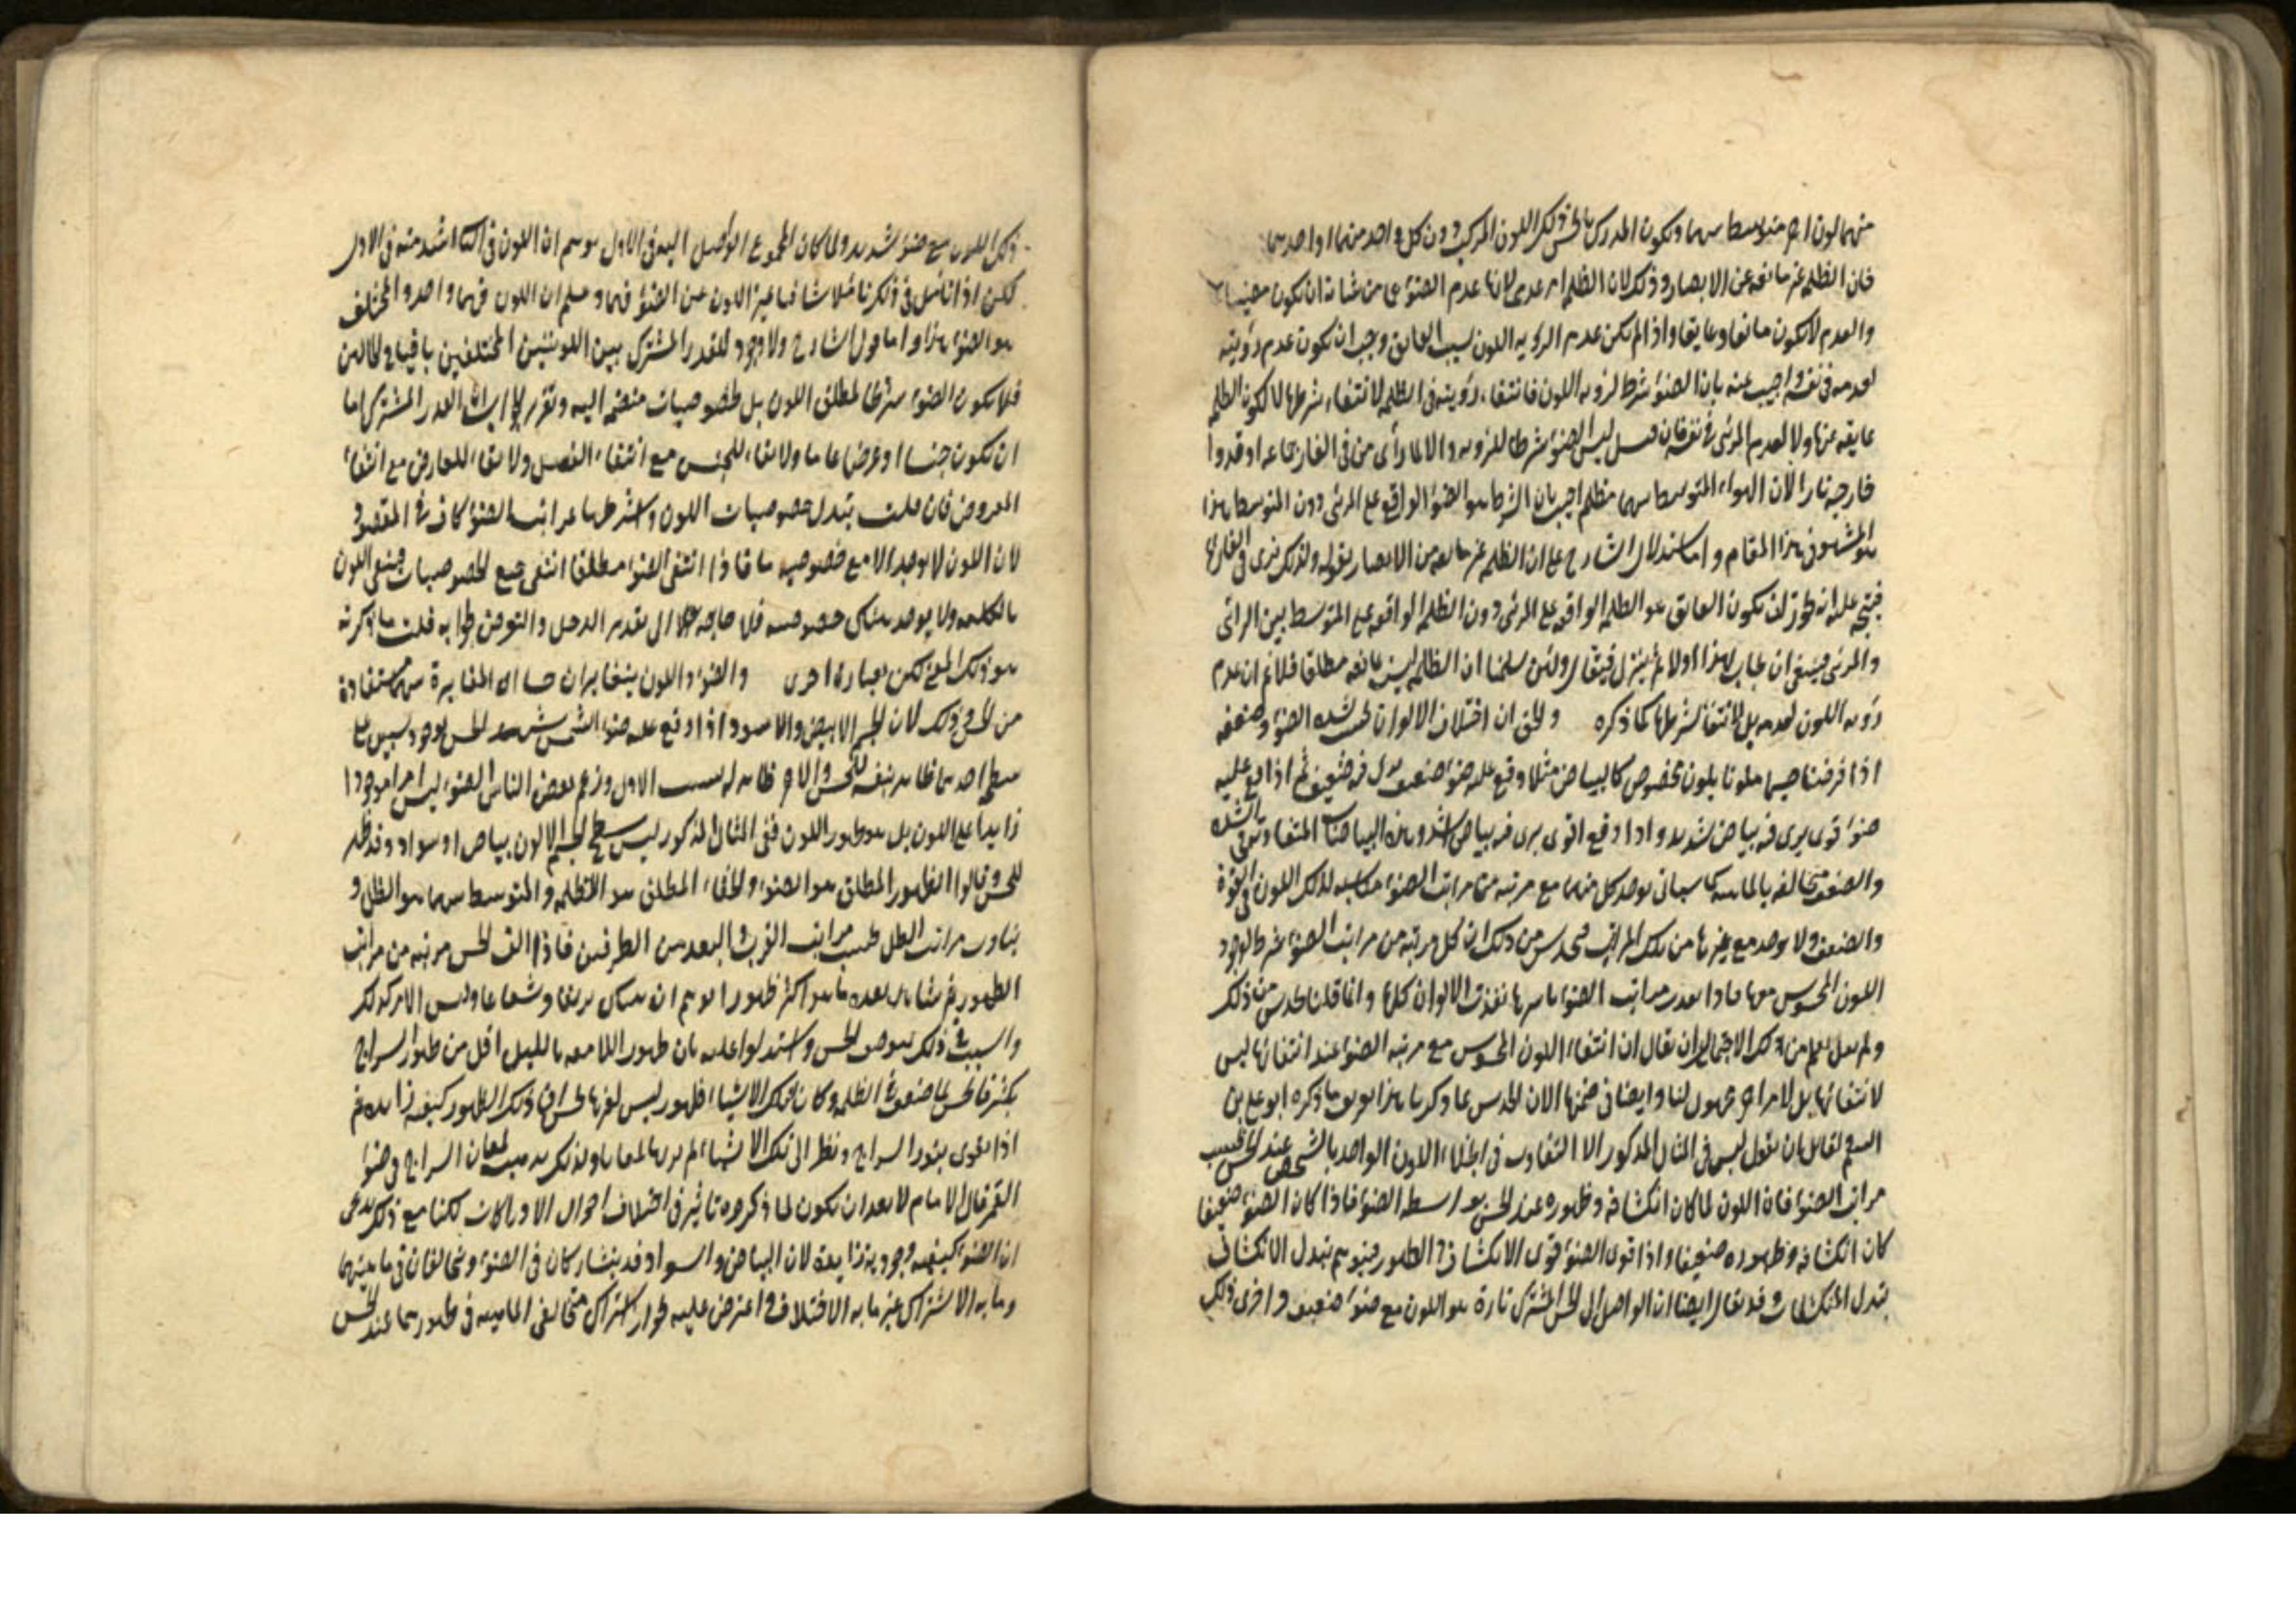 منهما لون اخر متوسط بينهما ويكون المدرك بالحس ذلك اللون المركب دون كل واحد منهما او احدهما
فان الظلمة غير مانعة عن الابصار وذلك لان الظلمة امر عدمى لانها عدم الضوء عن من شانه ان يكون مضيئا
والعدم لا يكون مانعا وعايقا واذا لم يكن عدم الرويه اللون بسبب العايق وجب ان يكون عدم رؤيته
لعدمه فى نفسه واجيب عنه بان الضوء شرط لرويه اللون فانتفاء رؤيته فى الظلمه لانتفاء شرطها لا لكون الظلمه
عايقه عنها ولا لعدم المرئى فى نفسه فان قيل ليس الضوء شرطا للرويه والا لما رأى من فى الغار جماعه اوقدوا
خارجه نارا لان الهواء المتوسط بينهما مظلم اجيب بان الشرط هو الضوء الواقع على المرئى دون المتوسط هذا
هو المشهور فى هذا المقام واما استدلال الشارح على ان الظلمه غير مانعه من الابصار بقوله ولذلك يرى فى الغار
فيتجه عليه انه يجوز ان يكون العايق هو الظلمه الواقعه على المرئى دون الظلمه الواقعه على المتوسط بين الرائى
والمرئى فينبغى ان يجاب بهذا اولا ثم ينزل فيقال ولئن سلمنا ان الظلمه ليست مانعه مطلقا فلا نم ان عدم
رؤيه اللون لعدمه بل لانتفاء شرطها كما ذكره والحق ان اختلاف الالوان بحسب شده الضوء وضعفه
اذا فرضنا جسما ملونا بلون مخصوص كالبياض مثلا وقع عليه ضوء ضعيف يرى فيه ضعيف ثم اذا وقع عليه
ضوء قوى يرى فيه بياض شديد واذا وقع اقوى يرى فيه بياض اشد وهذه البياضات المتفاوته فى الشده
والضعف متخالفه بالماهيه كما سياتى يوجد كل منها مع مرتبه من مراتب الضوء مناسبه لذلك اللون فى القوة
والضعف ولا يوجد مع غيرها من تلك المراتب فيحدس من ذلك ان كل مرتبه من مراتب الضوء شرط لوجود
اللون المحسوس معها فاذا فقدت مراتب الضوء باسرها فقدت الالوان كلها وانما قلنا يحدس من ذلك
ولم نقل يعلم من ذلك لاحتمال ان يقال ان انتفاء اللون المحسوس مع مرتبه الضوء عند انتفائها ليس
لانتفائها بل لامر اخر مجهول لنا وايضا فى ضمنها الا ان الحدس بما ذكرنا هذا يويد ما ذكره ابو على بن
الهيثم لقايل ان يقول ليس فى المثال المذكور الا التفاوت فى انجلاء اللون الواحد بالشخص عند الحس بحسب
مراتب الضوء فان اللون لما كان انكشافه وظهوره عند الحس بواسطه الضوء فاذا كان الضوء ضعيفا
كان انكشافه وظهوره ضعيفا واذا قوى الضوء قوى الانكشاف والظهور فيتوهم تبدل الانكشاف
تبدل المنكشفات وقد يقال ايضا ان الواصل الى الحس المشترك تارة هو اللون مع ضوء ضعيف واخرى ذلك
ذلك اللون مع ضوء شديد ولما كان المجموع الواصل اليه فى الاول يوهم ان اللون فى الثانى اشد منه فى الاول
لكن اذا تامل فى ذلك تاملا شافيا ميز اللون عن الضوء فيهما وعلم ان اللون فيهما واحد والمختلف
هو الضوء هذا واما قول الشارح ولا وجود للقدر المشترك بين اللونين المختلفين باقيا فى الحالين
فلا يكون الضوء شرطا لمطلق اللون بل لخصوصيات منضمه اليه وتقريره ان القدر المشترك اما
ان يكون جنسا او عرضا عاما ولا بقاء للجنس مع انتفاء الفصل ولا بقاء للعارض مع انتفاء
المعروض فان قلت تبدل خصوصيات اللون واشتراطها بمراتب الضوء كاف فى المقصود
لان اللون لا يوجد الا مع خصوصيه ما فاذا انتفى الضوء مطلقا انتفى جميع الخصوصيات فينتفى اللون
بالكليه ولا يوجد هناك خصوصيه فلا حاجه الى تقدير الدخل والتعرض لجوابه قلت ما ذكرته
هو ذلك المعنى لكن بعبارة اخرى والضوء واللون يتغايران حسا اى المغايرة بينهما مستفادة
من الحس وذلك لان الجسم الابيض والاسود اذا وقع عليه ضوء الشمس شهد الحس بوجود شيئين على
سطح احدهما ظاهر بنفسه للحس والاخر ظاهر له بسبب الاول وزعم بعض الناس ان الضوء ليس امرا موجودا
زايدا على اللون بل هو ظهور اللون ففى المثال المذكور ليس على سطح الجسم الا لون بياض او سواد وقد ظهر
للحس وقالوا الظهور المطلق هو الضوء والخفاء المطلق هو الظلمه والمتوسط بينهما هو الظل و
تفاوت مراتب الظل بحسب مراتب القرب والبعد من الطرفين فاذا الف الحس مرتبه من مراتب
الظهور ثم شاهد بعده ما هو اكثر ظهورا توهم ان هناك بريقا وشعاعا وليس الامر كذلك
والسبب فى ذلك ضعف الحس واستدلوا عليه بان ظهور اللامعه بالليل اقل من ظهور السراج
بكثير فالحس لما ضعف فى الظلمه وكان لتلك الاشياء ظهور ليس لغيرها ظن ان ذلك الظهور كيفيه زايده ثم
اذا تقوى بنور السراج ونظر الى تلك الاشياء لم ير لها لمعانا ولذلك يذهب لمعان السراج فى ضوء
القمر قال الامام لا يبعد ان يكون لما ذكروه تاثير فى اختلاف احوال الادراكات لكنا مع ذلك ندعى
ان الضوء كيفيه وجوديه زايدة لان البياض والسواد قد يتشاركان فى الضوء ويتخالفان فى ماهيتهما
وما به الاشتراك غير ما به الاختلاف واعترض عليه بجواز اشتراك متخالفى الماهيه فى ظهورهما عند الحس